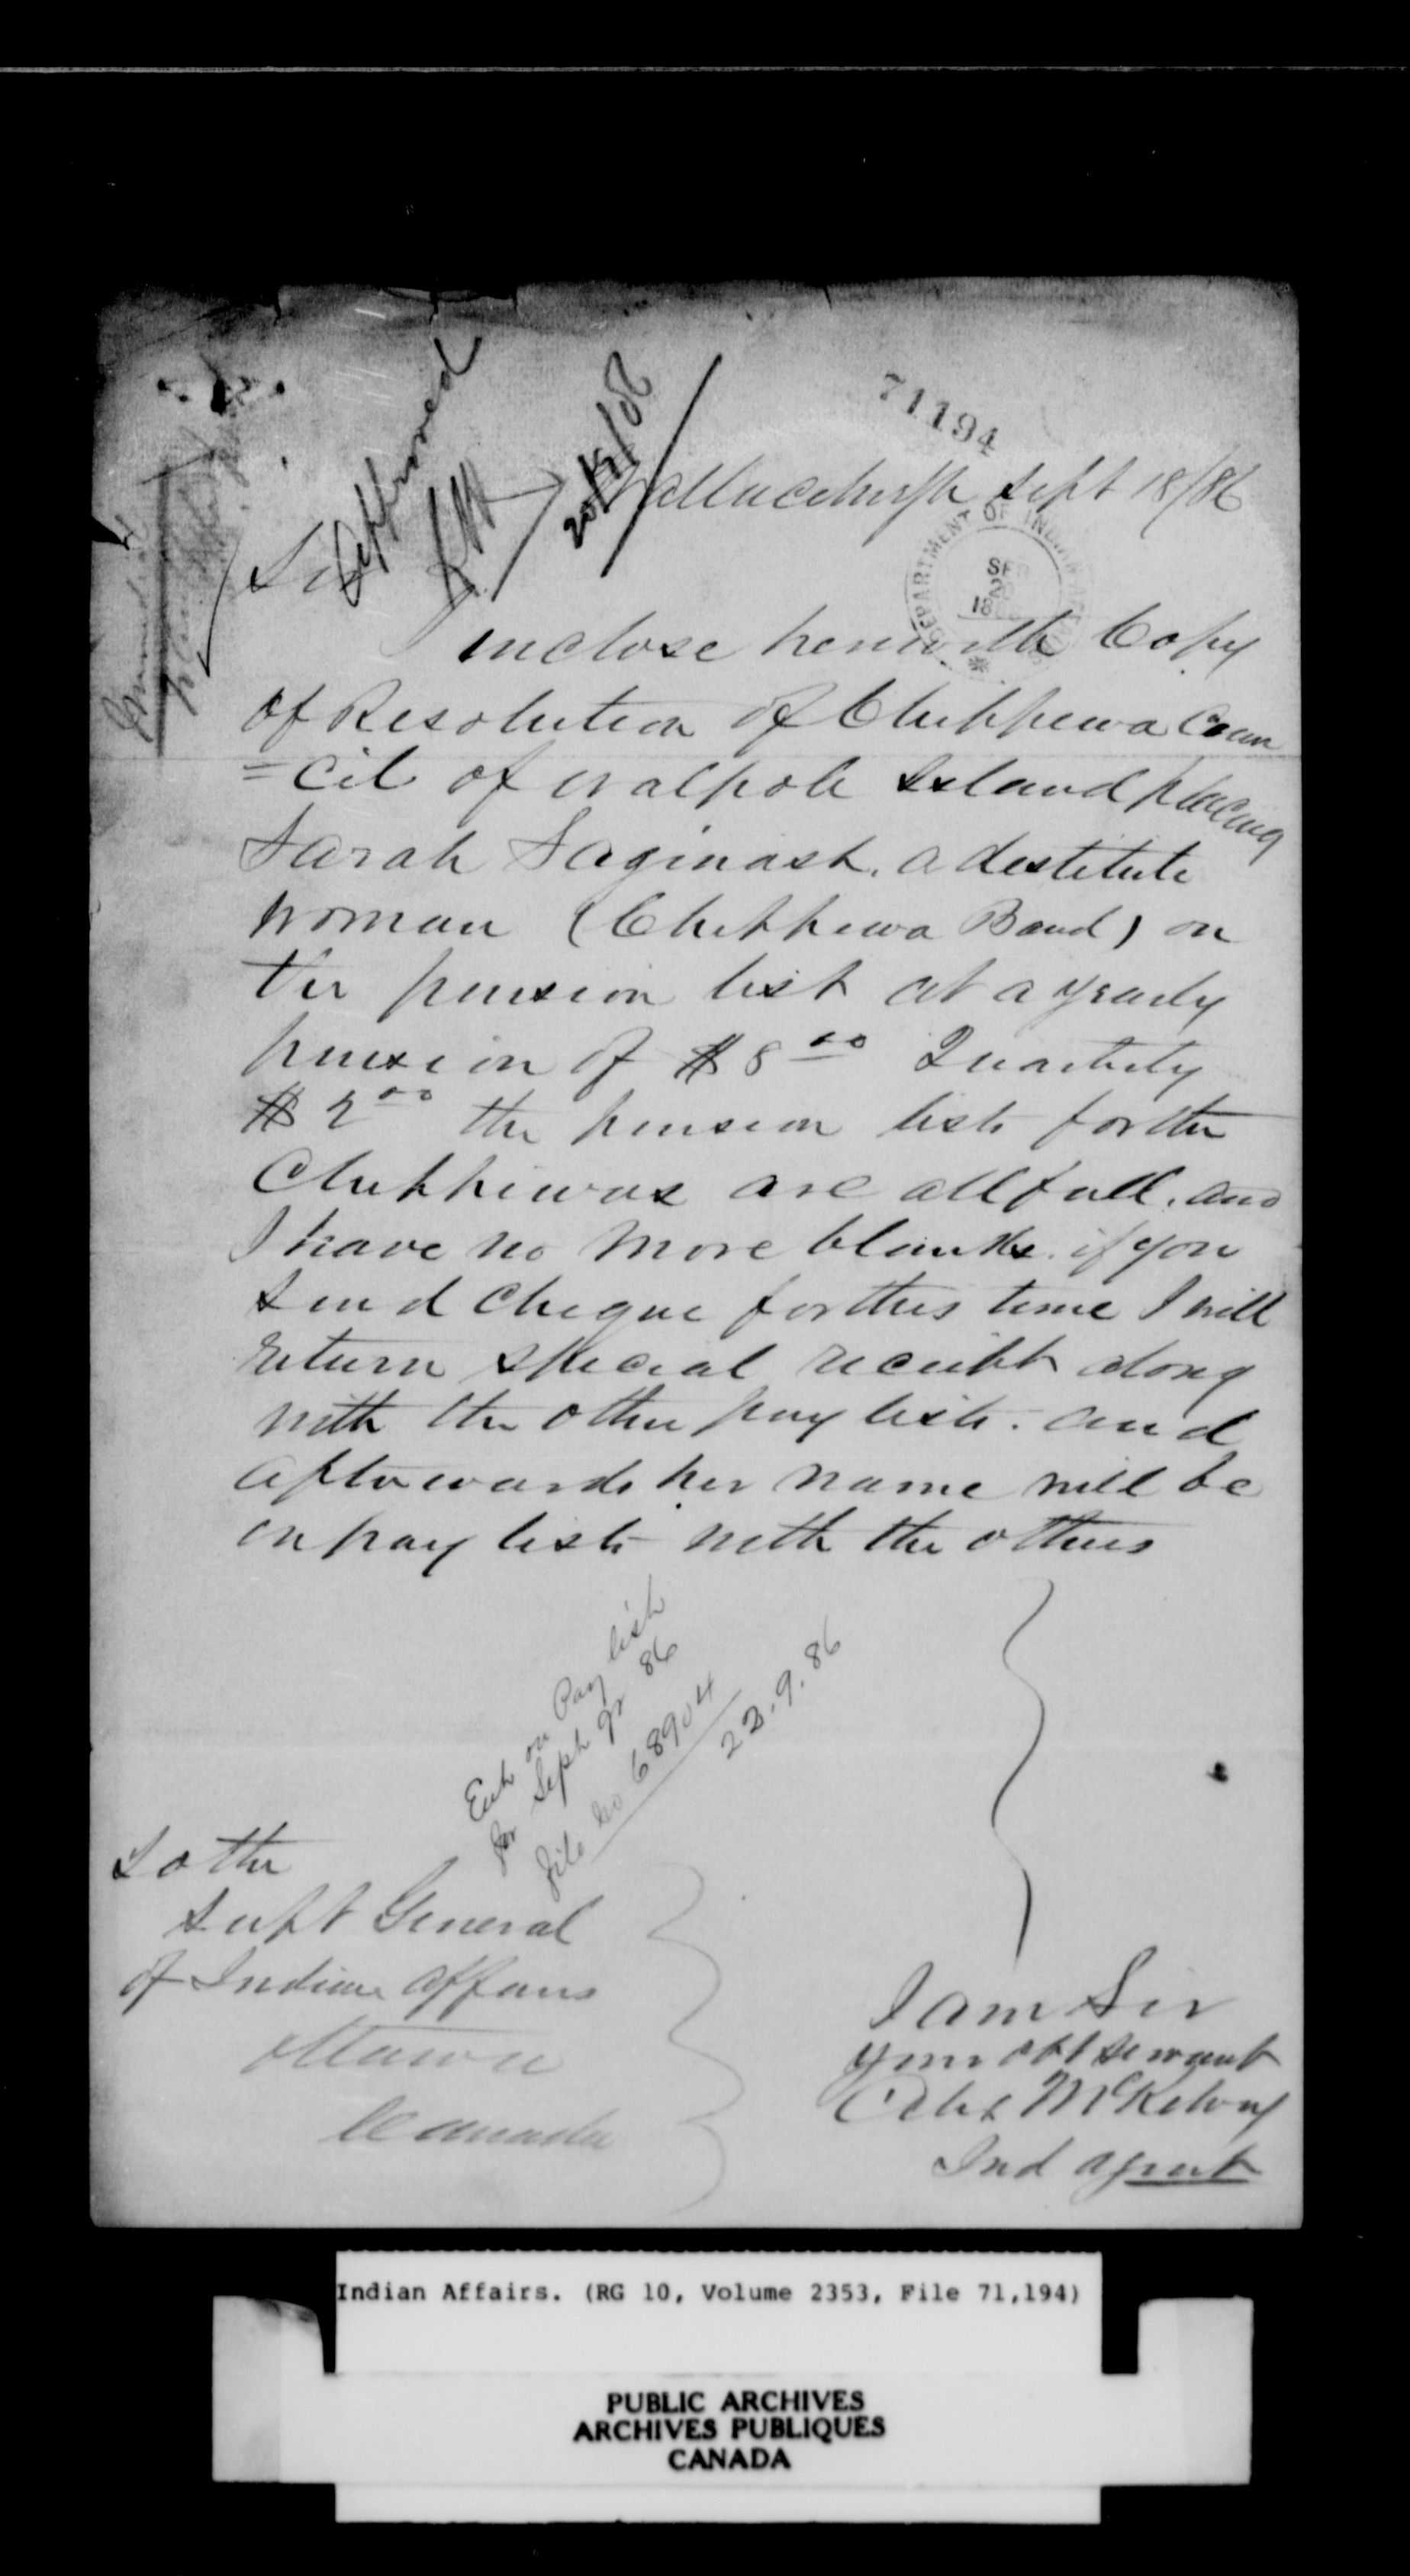 71194
Approved
20/9/86
Wallaceburgh Sept 18/86
DEPARTMENT OF INDIAN AFFAIRS
SEP
20
1886
Sir
I inclose herewith Copy
of Resolution of Chippewa Coun
=cil of Walpole Island placing
Sarah Saginash. a destitute
woman (Chippewa Band) on
the pension list at a yearly
pension of $8 00 Quarterly
$2 00 the pension lists for the
Chippewas are all full. and
I have no more blanks. if you
send cheque for this time I will
return special receipt along
with the other pay lists. and
afterwards her name will be
on pay lists with the others
Ent on Pay list
for Sept qr 86
file No 68904
22.9.86
To the
Supt General
of Indian Affairs
Ottawa
Canada
I am Sir
your obt servant
Alex McKelvey
Ind Agent
Indian Affairs. (RG 10, Volume 2353, File 71,194)
PUBLIC ARCHIVES
ARCHIVES PUBLIQUES
CANADA